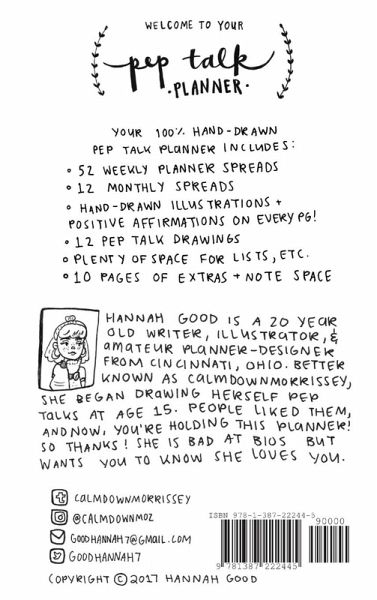 WELCOME TO YOUR
pep talk
·PLANNER·
YOUR 100% HAND-DRAWN
PEP TALK PLANNER INCLUDES:
• 52 WEEKLY PLANNER SPREADS
• 12 MONTHLY SPREADS
• HAND-DRAWN ILLUSTRATIONS +
POSITIVE AFFIRMATIONS ON EVERY PG!
• 12 PEP TALK DRAWINGS
• PLENTY OF SPACE FOR LISTS, ETC.
• 10 PAGES OF EXTRAS + NOTE SPACE
HANNAH GOOD IS A 20 YEAR
OLD WRITER, ILLUSTRATOR, &
AMATEUR PLANNER-DESIGNER
FROM CINCINNATI, OHIO. BETTER
KNOWN AS CALMDOWNMORRISSEY,
SHE BEGAN DRAWING HERSELF PEP
TALKS AT AGE 15. PEOPLE LIKED THEM,
AND NOW, YOU'RE HOLDING THIS PLANNER!
SO THANKS! SHE IS BAD AT BIOS BUT
WANTS YOU TO KNOW SHE LOVES YOU.
t CALMDOWNMORRISSEY
@CALMDOWNMOZ
GOODHANNAH7@GMAIL.COM
GOODHANNAH7
COPYRIGHT © 2017 HANNAH GOOD
ISBN 978-1-387-22244-5
90000
9 781387 222445